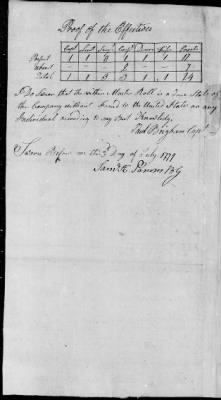 Proof of the Effectives
Capt Lieut Serjt Corpl Drum Fife Privates
Present 1 1 3 1 1 1 17
Absent – – – 2 – – 7
Total 1 1 3 3 1 1 24
I Do Swear that the within Muster Roll is a True State of
the Company without Fraud to the United States or any
Individual according to my Best Knowledge
Paul Brigham Capt
Sworn Before me this 3d Day of July 1779
Saml H. Parsons B G